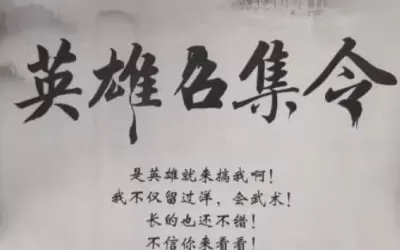 英雄召集令
是英雄就来搞我啊!
我不仅留过洋，会武术!
长的也还不错!
不信你来看看!